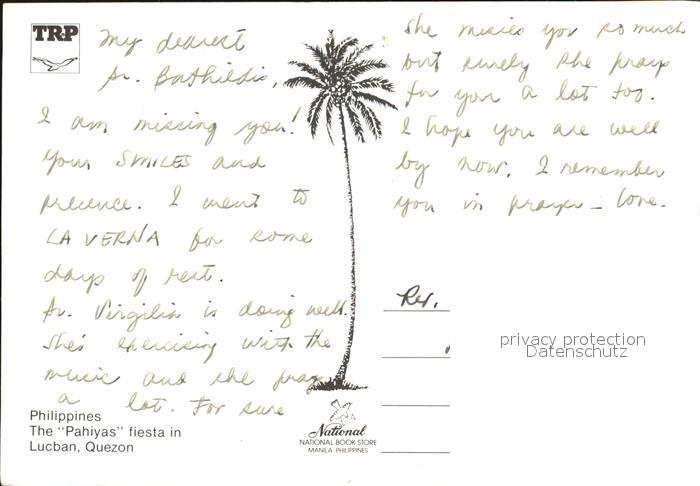 TRP
My dearest
Sr. Bathildis,
I am missing you!
Your SMILES and
precence. I went to
LA VERNA for some
days of rest.
Sr. Virgilia is doing well.
She's exercising with the
music and she pray
a lot. For sure
She misses you so much
but surely she prays
for you a lot too.
I hope you are well
by now. I remember
you in prayer – love.
Rev.
privacy protection
Datenschutz
Philippines
The "Pahiyas" fiesta in
Lucban, Quezon
National
NATIONAL BOOK STORE
MANILA, PHILIPPINES